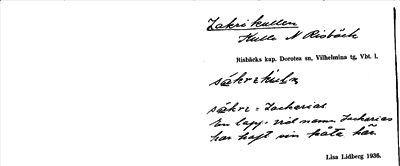 Zakrikullen
Kulle N Risbäck
Risbäcks kap. Dorotea sn, Vilhelmina tg, Vbt. l.
sákrekul̄n
sákre = Zacharias
En lapp vid namn Zacharias
har haft sin kåta här.
Lisa Lidberg 1936.